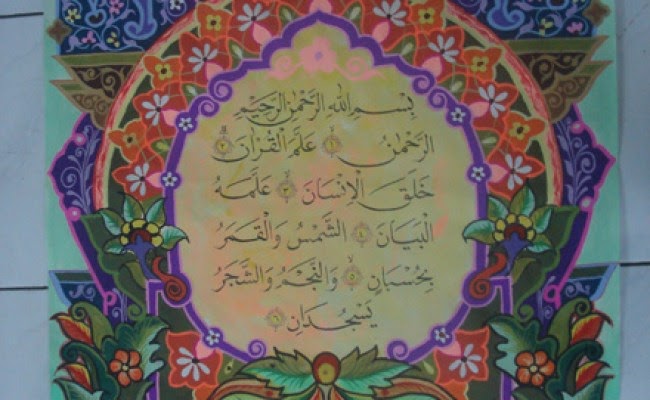 بِسْمِ اللهِ الرَّحْمٰنِ الرَّحِيْمِ
الرَّحْمٰنُ ۝١ عَلَّمَ الْقُرْاٰنَ ۝٢
خَلَقَ الْاِنْسَانَ ۝٣ عَلَّمَهُ
الْبَيَانَ ۝٤ الشَّمْسُ وَالْقَمَرُ
بِحُسْبَانٍ ۝٥ وَالنَّجْمُ وَالشَّجَرُ
يَسْجُدَانِ ۝٦